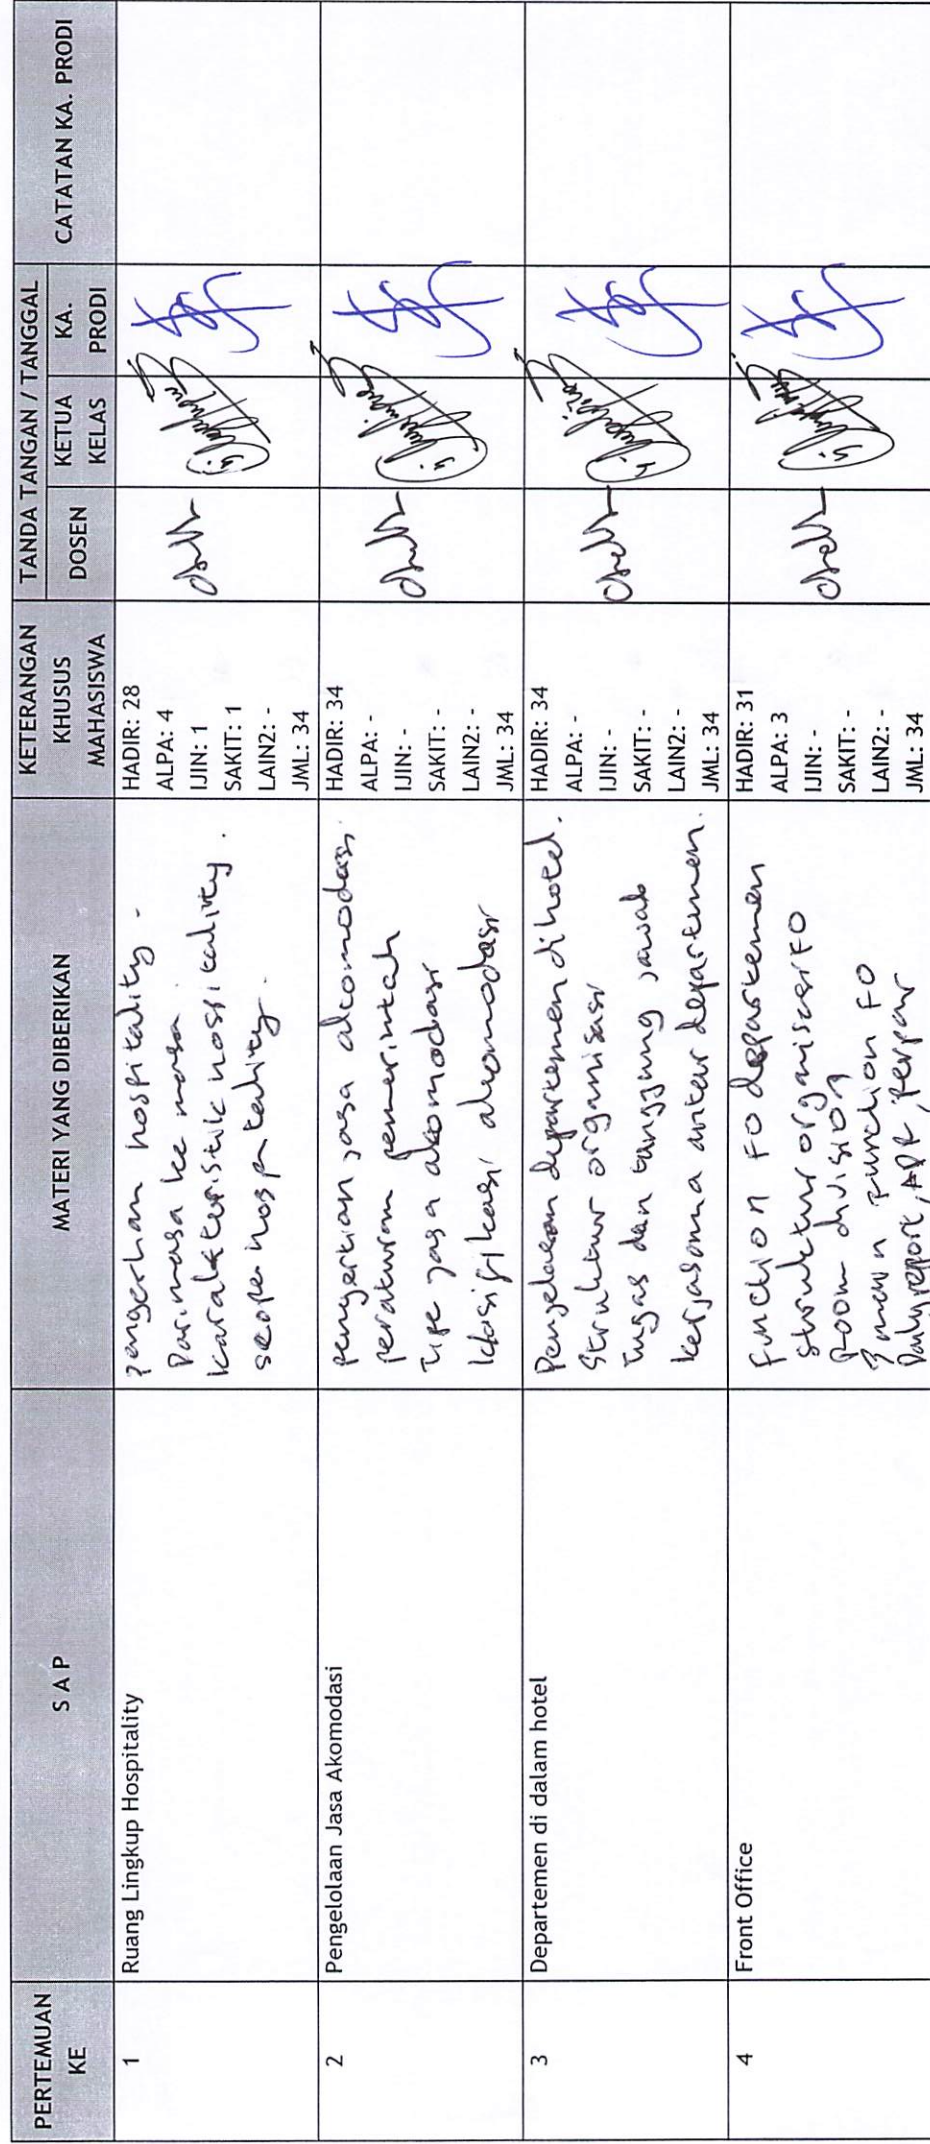 PERTEMUAN KE
S A P
MATERI YANG DIBERIKAN
KETERANGAN KHUSUS MAHASISWA
TANDA TANGAN / TANGGAL
DOSEN
KETUA KELAS
KA. PRODI
CATATAN KA. PRODI
1
Ruang Lingkup Hospitality
pengertian hospitality.
Dari masa ke masa.
karakteristik hospitality.
scope hospitality.
HADIR: 28
ALPA: 4
IJIN: 1
SAKIT: 1
LAIN2: -
JML: 34
2
Pengelolaan Jasa Akomodasi
pengertian jasa akomodasi.
peraturan pemerintah
Tipe jasa akomodasi
klasifikasi akomodasi
HADIR: 34
ALPA: -
IJIN: -
SAKIT: -
LAIN2: -
JML: 34
3
Departemen di dalam hotel
Penjelasan departemen di hotel.
Struktur organisasi
Tugas dan tanggung jawab
kerjasama antar departemen.
HADIR: 34
ALPA: -
IJIN: -
SAKIT: -
LAIN2: -
JML: 34
4
Front Office
Function FO departemen
struktur organisasi FO
Room division
main function FO
Daily report, ADR,
HADIR: 31
ALPA: 3
IJIN: -
SAKIT: -
LAIN2: -
JML: 34